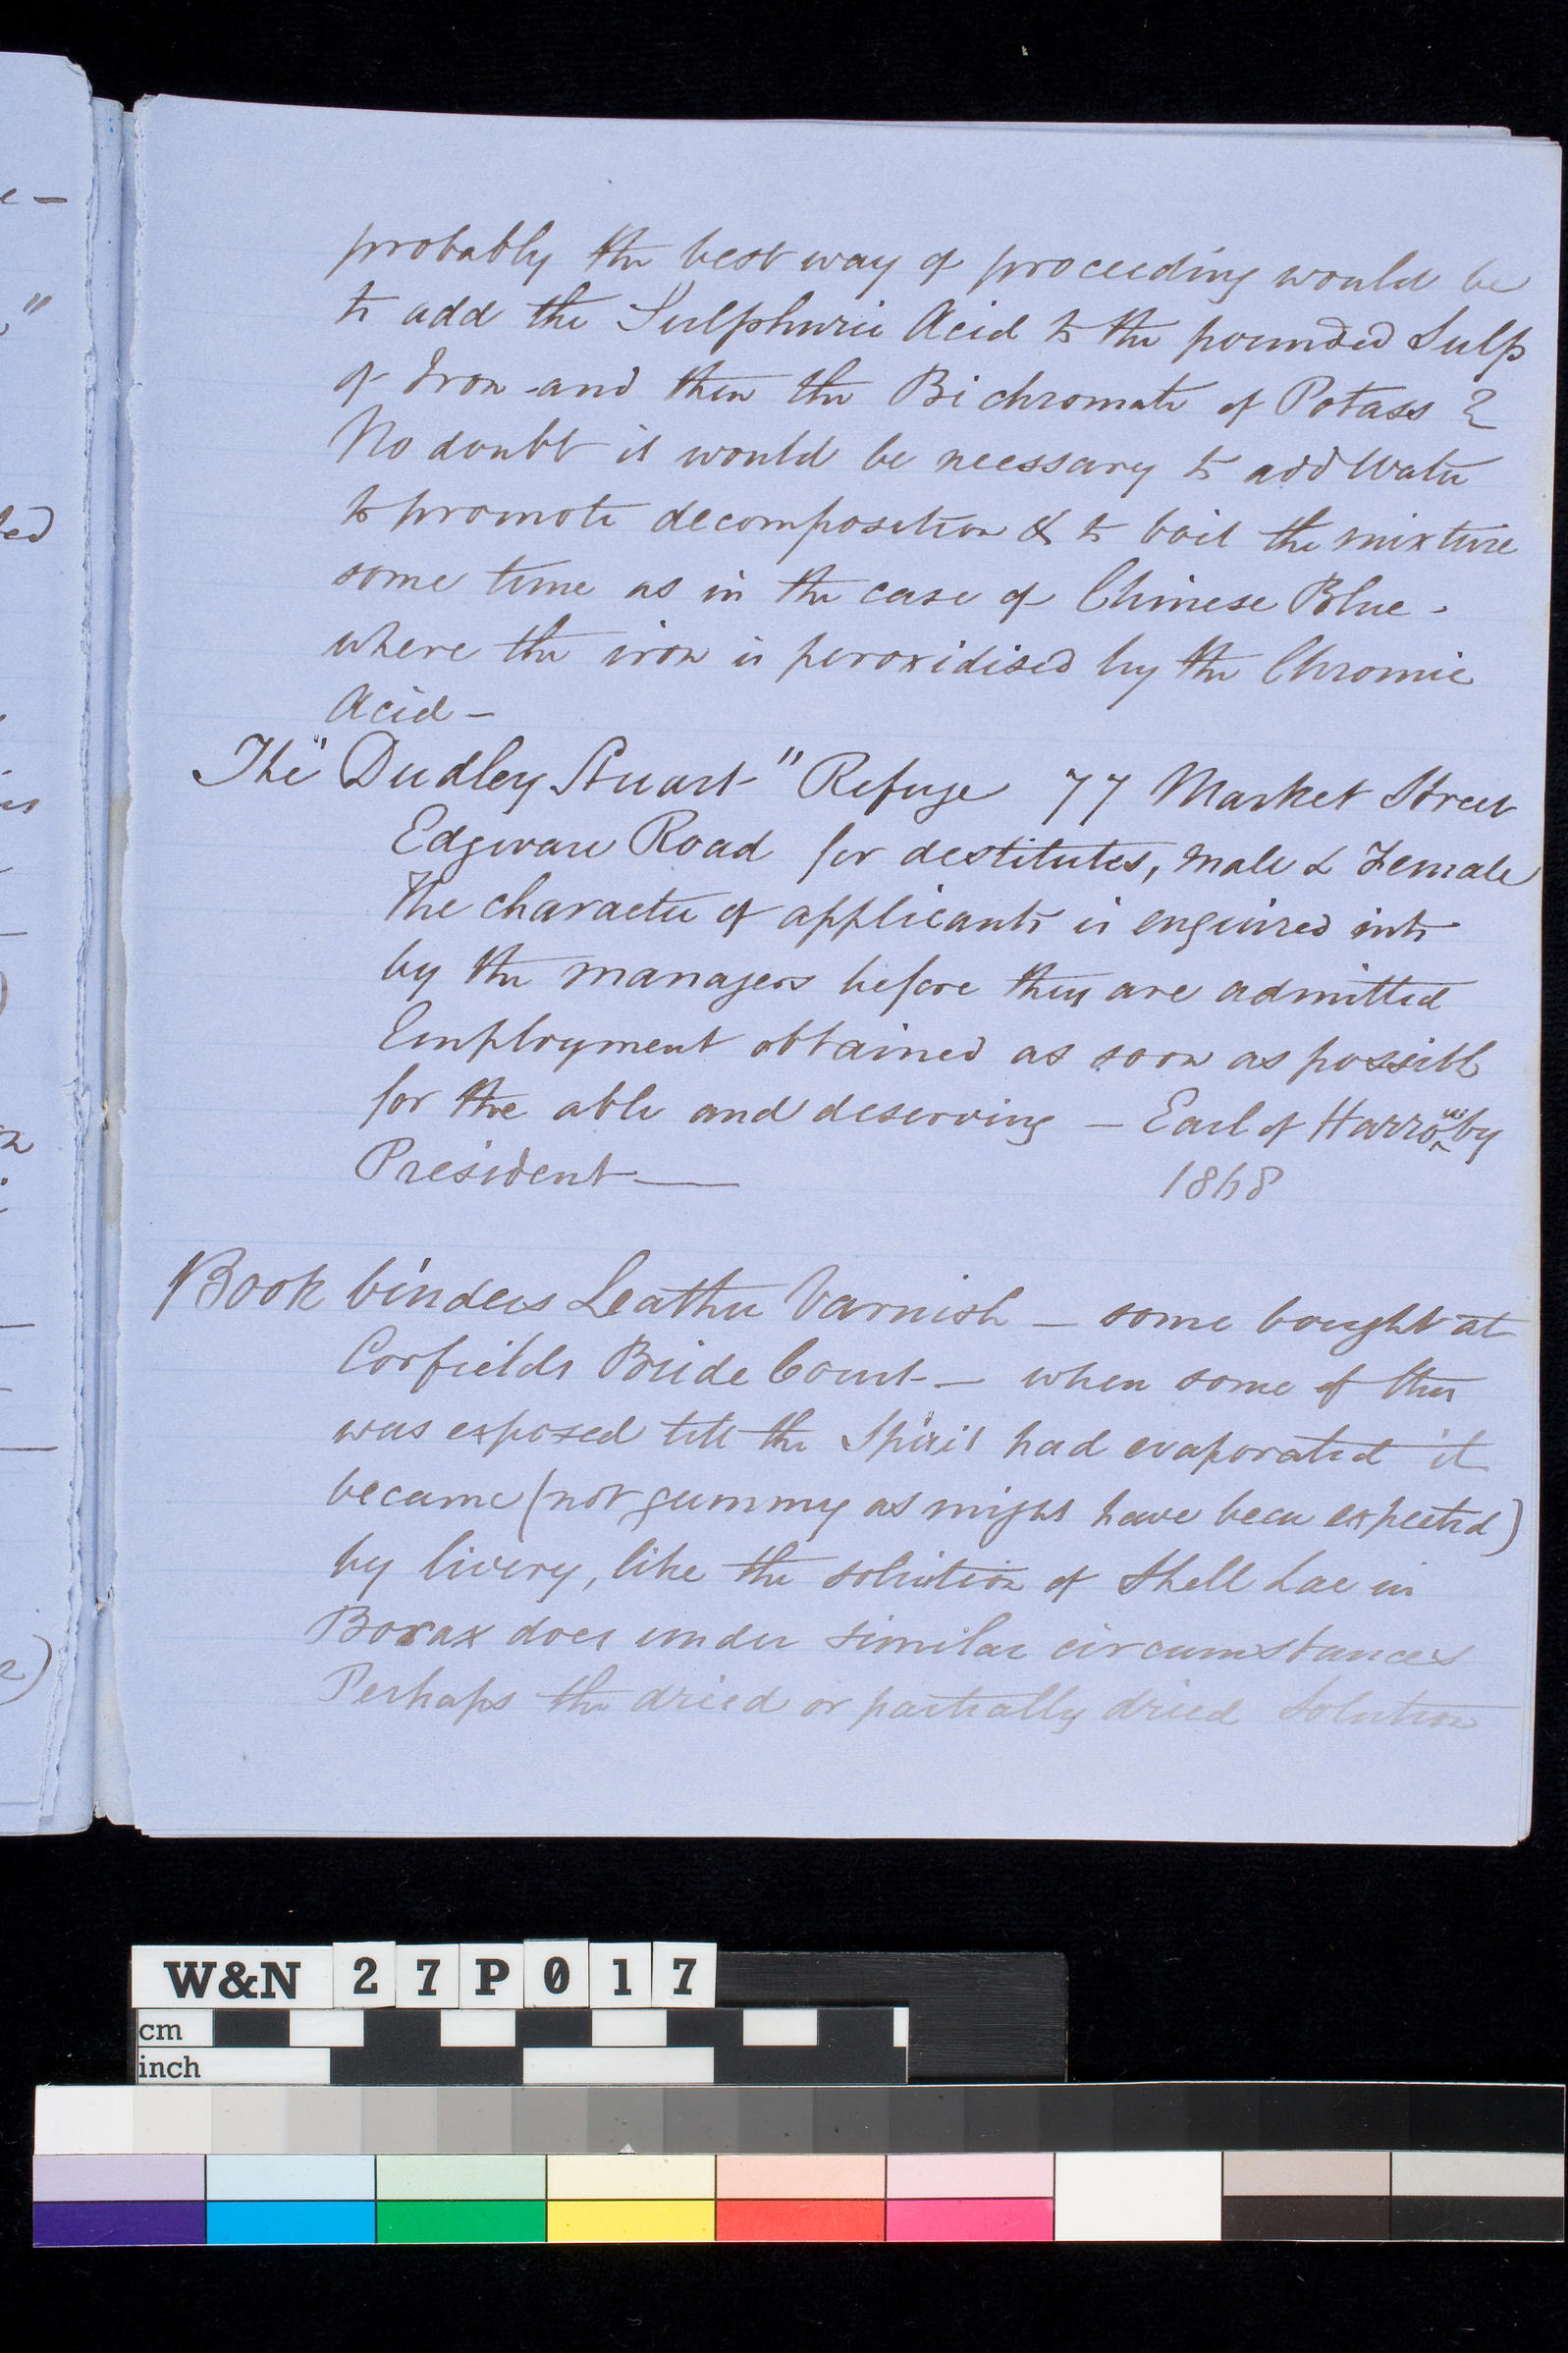 probably the best way of proceeding would be
to add the Sulphuric Acid to the pounded Sulp
of Iron and then the Bichromate of Potass ?
No doubt it would be necessary to add Water
to promote decomposition & to boil the mixture
some time as in the case of Chinese Blue -
where the iron is peroxidised by the Chromic
Acid -
The "Dudley Stuart" Refuge 77 Market Street
Edgware Road for destitutes, male & Female
The character of applicants is enquired into
by the managers before they are admitted
Employment obtained as soon as possible
for the able and deserving - Earl of Harrowby
President - 1868
Book binders Leather Varnish - some bought at
Corfields Bride Court - when some of this
was exposed till the Spirit had evaporated it
became (not gummy as might have been expected)
by livery, like the solution of Shell Lac in
Borax does under similar circumstances
Perhaps the dried or partially dried solution
W&N 27P017
cm
inch